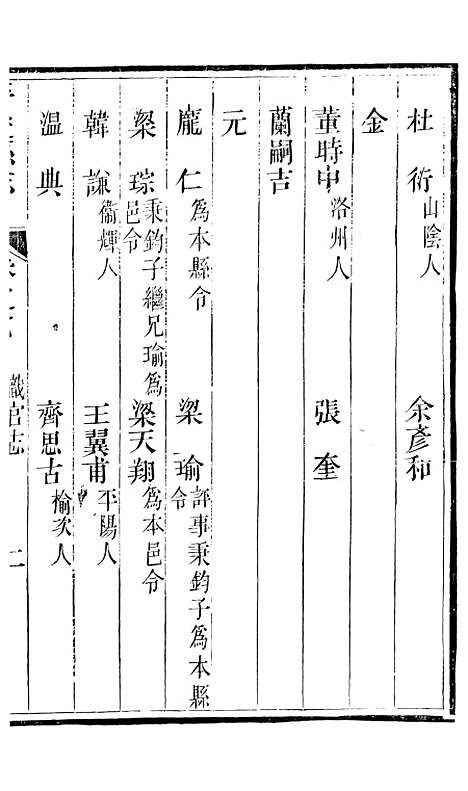 杜衍山陰人　余彥和
金
董時中洺州人　張奎
蘭嗣吉
元
龐仁為本縣令　梁瑜評事秉鈞子為本縣令
梁琮秉鈞子繼兄瑜為邑令　梁天翔為本邑令
韓謙衛輝人　王翼甫平陽人
溫典　齊思古榆次人
職官志　二